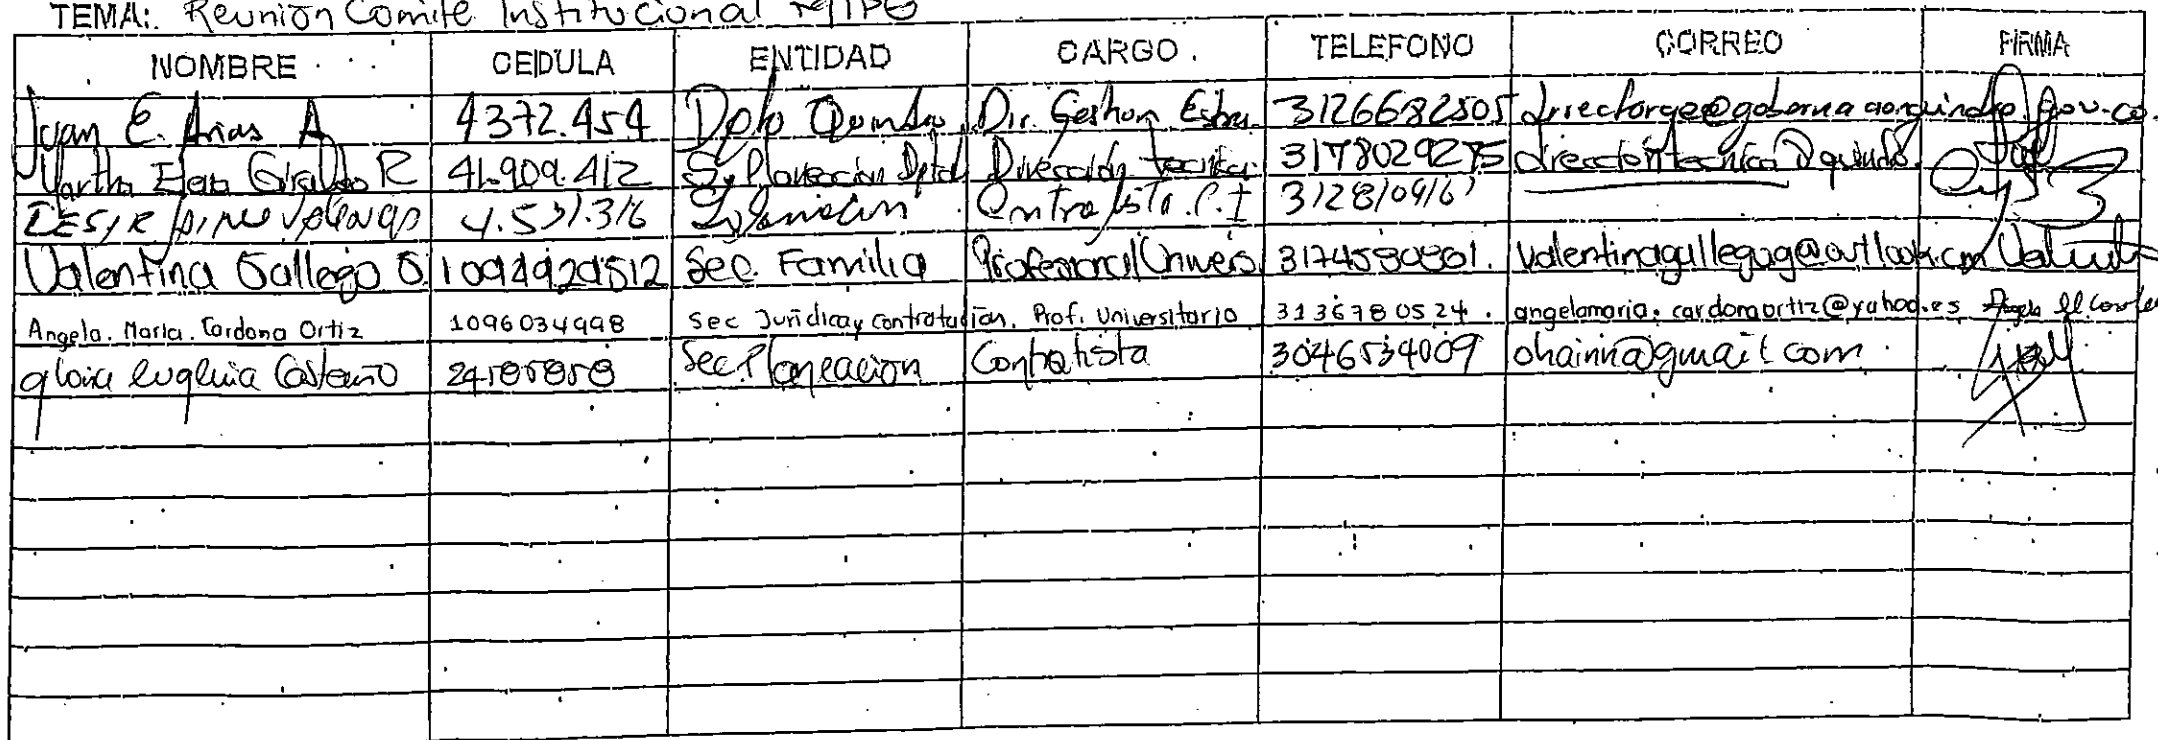 TEMA: Reunión Comité Institucional MIPG
NOMBRE CEDULA ENTIDAD CARGO. TELEFONO CORREO FIRMA
Juan E. Arias A 4372.454 Dpto Quindío Dir. Gestion Estra. 3126682505
Martha Elena Giraldo R 41.909.412 S. Planeación Dptal Dirección tecnica 3178029275 direcciontecnica@quindio.
4.531.316 Contratista.
Valentina Gallego G. 1094929512 Sec. Familia Profesional Univers 3174580801. valentinagallegog@outlook.com Valent
Angela. Maria. Cardona Ortiz 1096034998 Sec Juridica y contratación. Prof. Universitario 3136780524. angelamaria.cardonaortiz@yahoo.es Angela
gloria eugenia Castaño Sec Planeacion Contratista 3046534009 ohainn@gmail com.